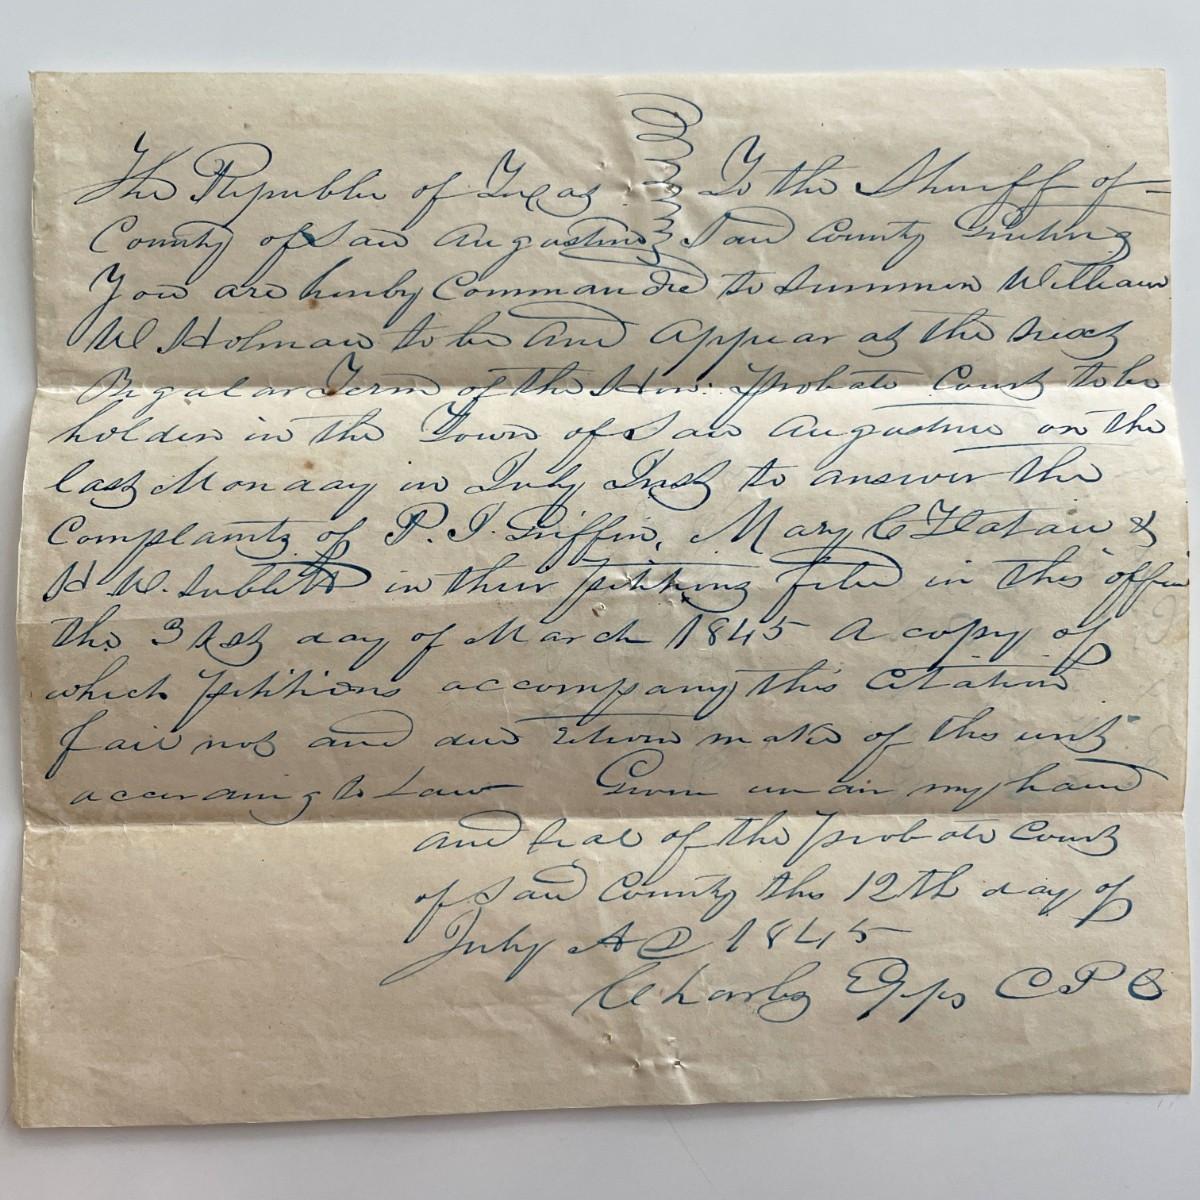 The Republic of Texas To the Sheriff of
County of San Augustine Said County Greeting
You are hereby Commanded to Summon William
W Holman to be and appear at the next
Regular Term of the Hon: Probate Court to be
holden in the Town of San Augustine on the
last Monday in July Inst to answer the
Complaints of P. J. Griffin, Mary C & 
H W. Sublett in their petitions filed in this office
the 31st day of March 1845 A copy of
which petitions accompany this Citation
Fail not and due return make of this writ
according to Law Given under my hand
and Seal of the Probate Court
of Said County this 12th day of
July A D 1845
Charles Epps C P C